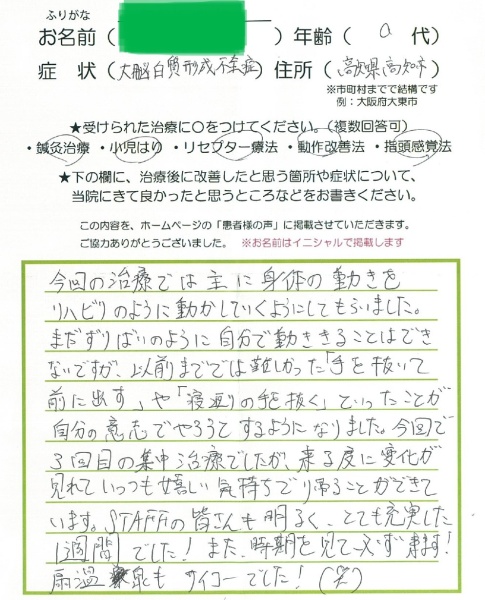 ふりがな
お名前（　　　）年齢（ 0 代）
症 状（大脳白質形成不全症）住所（高知県高知市）
※市町村までで結構です
例：大阪府大東市
★受けられた治療に○をつけてください。（複数回答可）
・鍼灸治療 ・小児はり ・リセプター療法 ・動作改善法 ・指頭感覚法
★下の欄に、治療後に改善したと思う箇所や症状について、
当院にきて良かったと思うところなどをお書きください。
この内容を、ホームページの「患者様の声」に掲載させていただきます。
ご協力ありがとうございました。 ※お名前はイニシャルで掲載します
今回の治療では主に身体の動きを
リハビリのように動かしていくようにしてもらいました。
まだずりばいのように自分で動ききることはでき
ないですが、以前まででは難しかった「手を抜いて
前に出す」や「寝返りの手を抜く」といったことが
自分の意志でやろうとするようになりました。今回で
3回目の集中治療でしたが、来る度に変化が
見れていっつも嬉しい気持ちで帰ることができて
います。STAFFの皆さんも明るく、とても充実した
1週間でした！また、時期を見て必ず来ます！
扇温泉もサイコーでした！（笑）